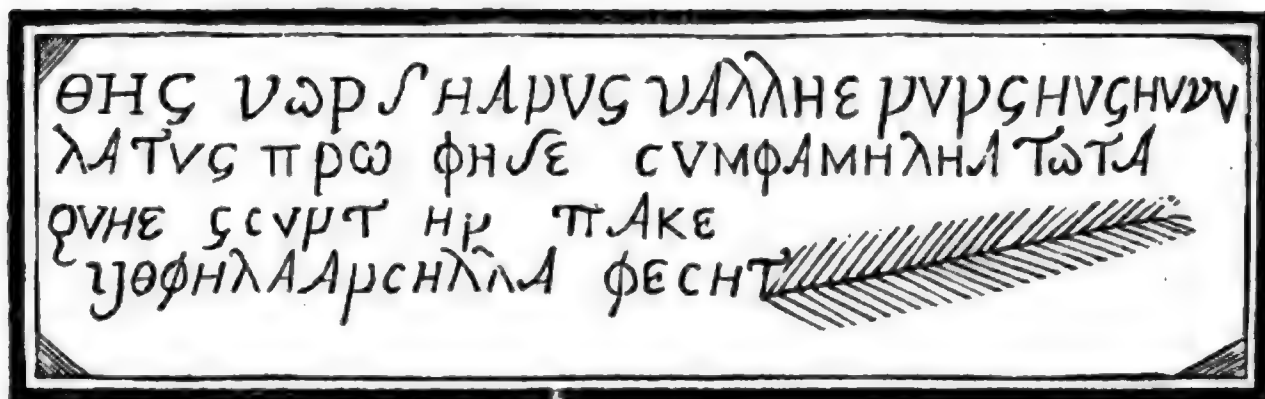 θΗς νωρſΗΑμVς νΑλλΗε μVμςΗVςΗVνV
λΑΤVς πρω φΗſε cVΜφΑΜΗλΗΑ ΤωΤΑ
ϱVΗε ςcVμΤ Ημ πΑκε
yθφΗλΑΑμcΗλλΑ φεcΗΤ